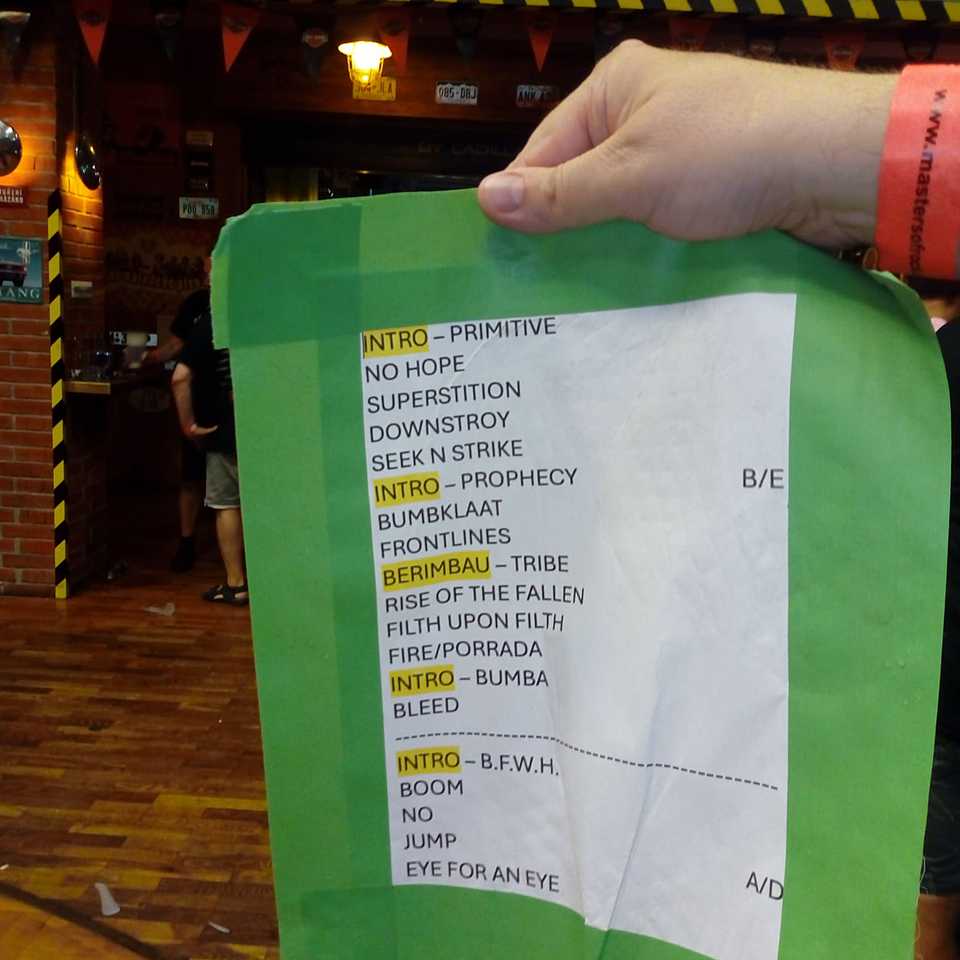 085-DBJ
POO 958
ANG
www.mastersofroc
INTRO – PRIMITIVE
NO HOPE
SUPERSTITION
DOWNSTROY
SEEK N STRIKE
INTRO – PROPHECY B/E
BUMBKLAAT
FRONTLINES
BERIMBAU – TRIBE
RISE OF THE FALLEN
FILTH UPON FILTH
FIRE/PORRADA
INTRO – BUMBA
BLEED
INTRO – B.F.W.H.
BOOM
NO
JUMP
EYE FOR AN EYE A/D